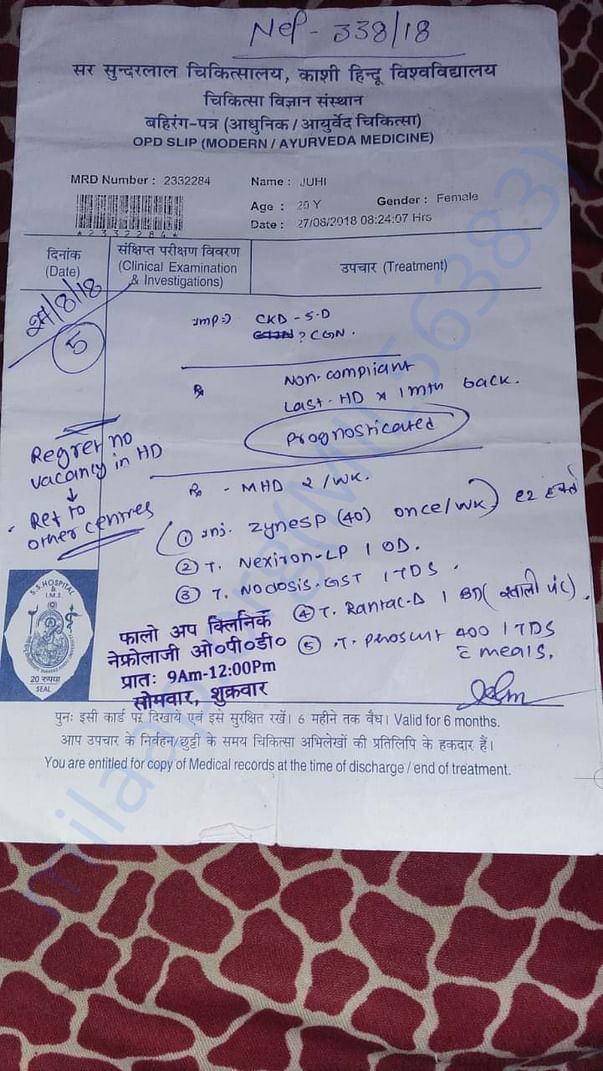 Nep - 338/18
सर सुन्दरलाल चिकित्सालय, काशी हिन्दू विश्वविद्यालय
चिकित्सा विज्ञान संस्थान
बहिरंग-पत्र (आधुनिक / आयुर्वेद चिकित्सा)
OPD SLIP (MODERN / AYURVEDA MEDICINE)
MRD Number : 2332284
Name : JUHI
Age : Y
Gender : Female
*2332284*
Date : 27/08/2018 08:24:07 Hrs
दिनांक
(Date)
संक्षिप्त परीक्षण विवरण
(Clinical Examination
& Investigations)
उपचार (Treatment)
/8/18
5
Imp:-) CKD - 5-D
? CGN.
Rx Non-compliant
Last-HD x 1 mth back.
Prognosticated
Regret no
vacancy in HD
↓
Ref to
other centres
Rx - MHD 2/WK.
① Inj. Zynesp (40) once/WK)
② T. Nexiron-LP 1 OD.
③ T. Nodosis-GST 1 TDS.
④ T. Rantac-D 1 BD (खाली पेट).
⑤ T. 400 1 TDS
c meals.
S.S. HOSPITAL
& I.M.S.
20 रुपया
SEAL
फालो अप क्लिनिक
नेफ्रोलाजी ओ०पी०डी०
प्रातः 9Am-12:00Pm
सोमवार, शुक्रवार
पुनः इसी कार्ड पर दिखायें एवं इसे सुरक्षित रखें। 6 महीने तक वैध। Valid for 6 months.
आप उपचार के निर्वहन/छुट्टी के समय चिकित्सा अभिलेखों की प्रतिलिपि के हकदार हैं।
You are entitled for copy of Medical records at the time of discharge / end of treatment.